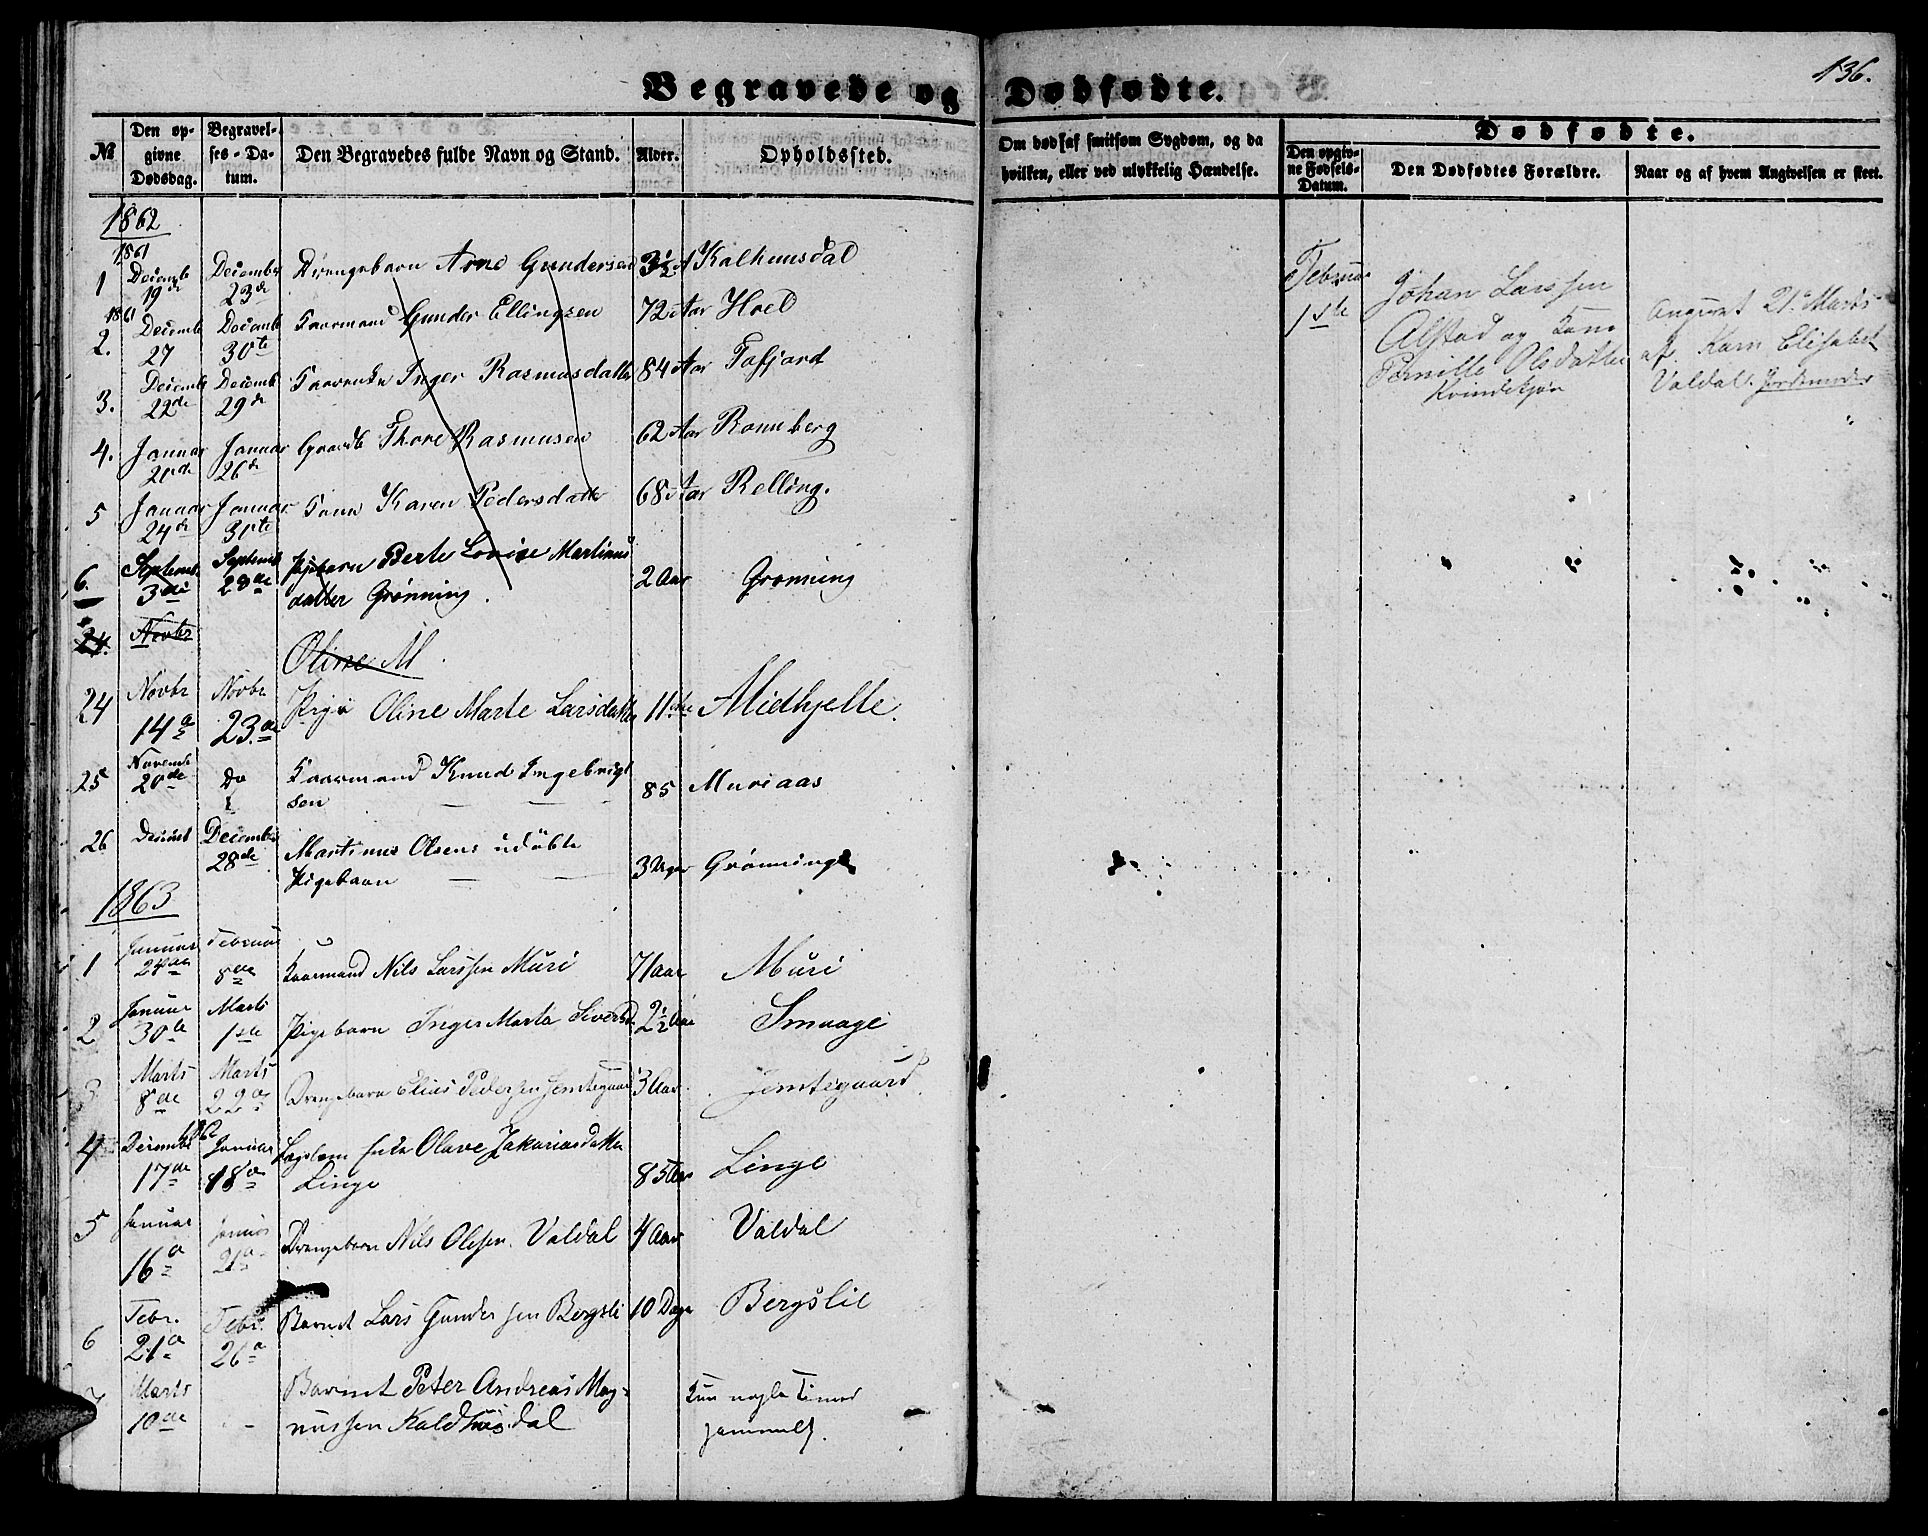 136.
Begravede og Dødfødte.
№
Den opgivne Dødsdag.
Begravelses-Datum.
Den Begravedes fulde Navn og Stand.
Alder.
Opholdssted.
Om død af smitsom Sygdom, og da
hvilken, eller ved ulykkelig Hændelse.
Dødfødte.
Den opgivne Fødsels-Datum.
Den Dødfødtes Forældre.
Naar og af hvem Angivelsen er skeet.
1862
1861
1 Decemb 19de December 23de Drengebarn Arne Gundersen 3½ A Kalhuusdal
1861
2. Decemb 27 Decemb 30te Kaarmand Gunder Ellingsen 72 Aar Hoel
3. Decemb 22de Decemb 29de Inger Rasmusdatter 84 Aar Tafjord
4. Januar Januar 26de Thore Rasmusen 62 Aar Rønneberg
5 Januar 24de Januar 31te Karen Pedersdatter 68 Aar Relling.
6. Septemb 3die Septemb 28de Pigebarn Berte Lovise Martinus
datter Grønning. 2 Aar Grønning
24. Novbr
Oline M
24 Novbr 14de Novbr 23de Pige Oline Marte Larsdatter 11 Midhjelle.
25 Novemb 20de Do Kaarmand Knud Ingebrigt
sen 85 Muriaas
26 December 28de Martinus Olsens udøbte
Pigebarn 3 Uger Grønning
1863
1 Januar Februar 8de Kaarmand Nils Larssen Muri 71 aar Muri
2 Januar 30te Marts 1ste Pigebarn Inger Marta Siversd. 2½ Aar Smaage
3 Marts 8de Marts 22de Drengebarn Elias Pedersen Jemtegaard 3 Aar Jemtegaard
4 Decembr 1862 17de Januar 18de Olave Zakariasdatter
Linge 85 Aar Linge
5 Januar 16de Januar 21de Drengebarn Nils Olsen Valdal 4 Aar Valdal
6 Febr. 21de Febr. 26de Barnet Lars Gundersen Bergsli 10 Dage Bergslie
7 Marts 10de - Barnet Peter Andreas Mag-
nussen Kaldhusdal Kun nogle Timer
gammelt.
Februar
1ste
Johan Larssen
Alstad og Kone
Pernille Olsdatter
Kvindekjøn
Angivet 21de Marts
af Karn Elisabet
Valdal. Jordemoder